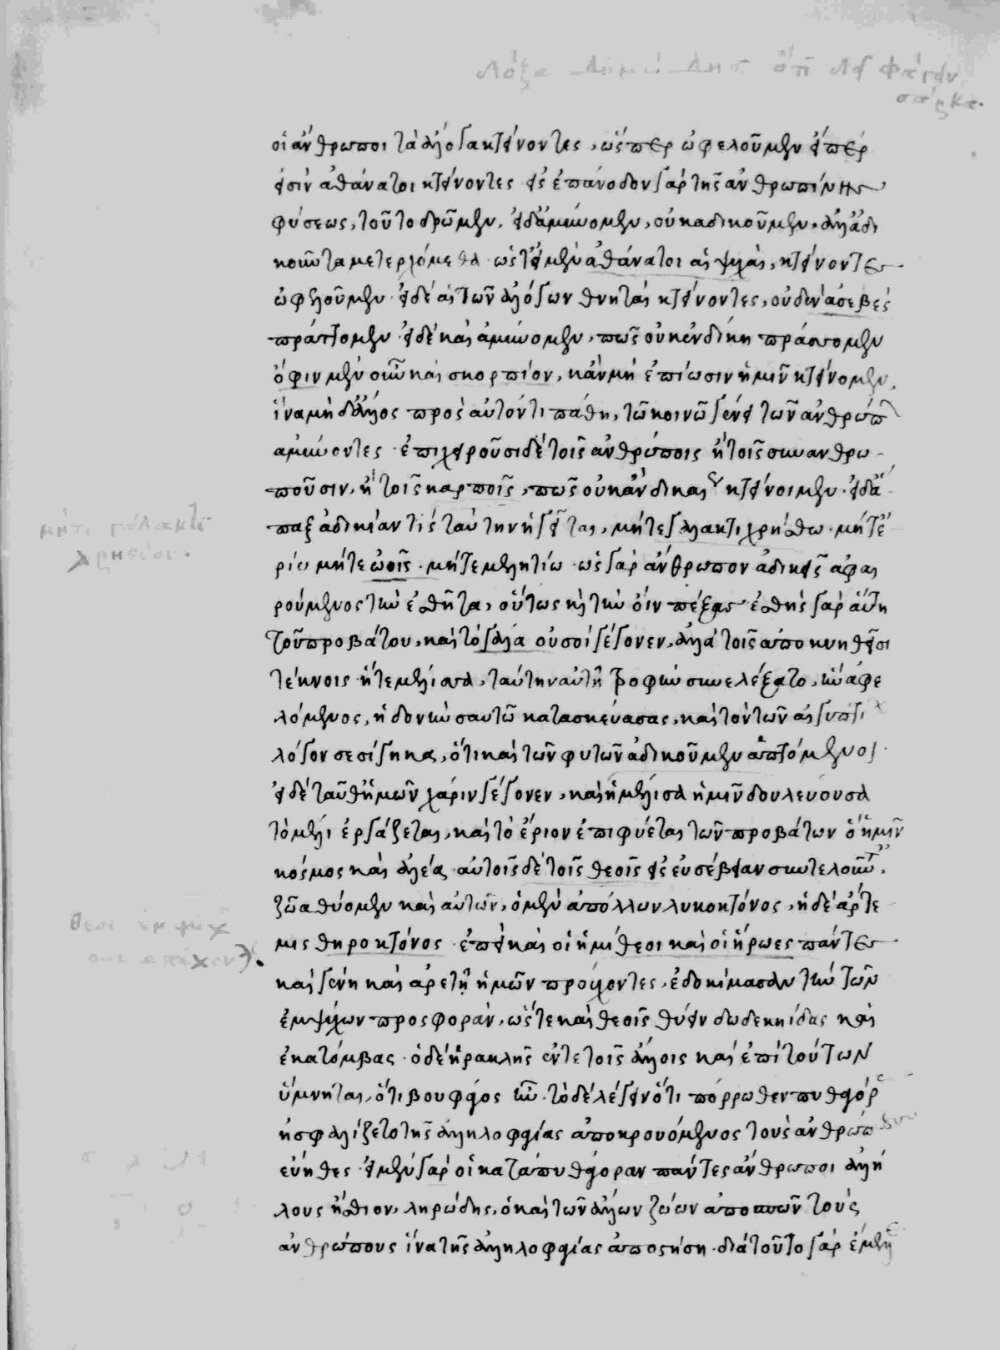 οἱ ἄνθρωποι τὰ ἄλογα κτείνοντες, ὥσπερ ὠφελοῦμεν εἴπερ
εἰσὶν ἀθάνατοι κτείνοντες εἰς ἐπάνοδον γὰρ τῆς ἀνθρωπίνης
φύσεως, τοῦτο δρῶμεν. εἰ δ' ἀμυνόμεθα, οὐκ ἀδικοῦμεν, ἀλλ' ἀδι
κοῦντα μετερχόμεθα· ὥστ' εἰ μὲν ἀθάνατοι αἱ ψυχαὶ, κτείνοντες
ὠφελοῦμεν· εἰ δὲ αἱ τῶν ἀλόγων θνηταὶ κτείνοντες, οὐδὲν ἀσεβὲς
πράττομεν· εἰ δὲ καὶ ἀμύνομεν, πῶς οὐκ ἐν δίκῃ πράττομεν
ὄφιν μὲν οὖν καὶ σκορπίον, κἂν μὴ ἐπίωσιν ἡμῖν κτείνομεν,
ἵνα μὴ δ' ἄλλος πρὸς αὐτόν τι πάθῃ, τῷ κοινῷ γένει τῶν ἀνθρώπ
ἀμύνοντες· ἐπιχειροῦσι δὲ τοῖς ἀνθρώποις ἢ τοῖς συνανθρω
ποῦσιν, ἢ τοῖς καρποῖς, πῶς οὐκ ἂν δικαί κτείνοιμεν· εἰ δ' ἅ
παξ ἀδικίαν τὶς ταύτην ἡγεῖται, μήτε γάλακτι χρήσθω· μήτ' ἐ
ρίῳ μήτε ὠοῖς· μήτε μέλιτι σὺ· ὡς γὰρ ἄνθρωπον ἀδικεῖς ἀφαι
ρούμενος τὴν ἐσθῆτα, οὕτως καὶ τὴν ὄιν πέξας· ἐσθὴς γὰρ αὕτη
τοῦ προβάτου, καὶ τὸ γάλα οὐ σοὶ γέγονεν, ἀλλὰ τοῖς ἀποκυηθεῖσι
τέκνοις ἥ τε μέλισσα, ταύτην αὑτῇ τροφὴν συνελέξατο, ἣν ἀφε
λόμενος, ἡδονὴν σαυτῷ κατασκεύασας, καὶ τὸν τῶν αἰγυπτί
λόγον σεσίγηκα, ὅτι καὶ τῶν φυτῶν ἀδικοῦμεν ἁπτόμενοι.
εἰ δὲ ταῦθ' ἡμῶν χάριν γέγονεν, καὶ ἡ μέλισσα ἡμῖν δουλεύουσα
τὸ μέλι ἐργάζεται, καὶ τὸ ἔριον ἐπιφύεται τῶν προβάτων ὁ ἡμῖν
κόσμος καὶ ἀλέα· αὐτοῖς δὲ τοῖς θεοῖς εἰς εὐσέβειαν συντελοῦντ,
ζῶα θύομεν καὶ αὐτῶν, ὁ μὲν ἀπόλλων λυκοκτόνος, ἡ δὲ ἄρτε
μις θηροκτόνος· ἐπεὶ καὶ οἱ ἡμίθεοι καὶ οἱ ἥρωες πάντες
καὶ γένη καὶ ἀρετῇ ἡμῶν προύχοντες, ἐδοκίμασαν τὴν τῶν
ἐμψύχων προσφορὰν, ὥστε καὶ θεοῖς θύειν δωδεκῃίδας καὶ
ἑκατόμβας· ὁ δὲ ἡρακλῆς ἔν τε τοῖς ἄλλοις καὶ ἐπὶ τούτων
ὕμνηται, ὅτι βουφάγος ἦν· τὸ δὲ λέγειν ὅτι πόρρωθεν πυθαγόρ
ἠσφαλίζετο τῆς ἀλληλοφαγίας ἀποκρουόμενος τοὺς ἀνθρώπ
εὔηθες· εἰ μὲν γὰρ οἱ κατὰ πυθαγόραν πάντες ἄνθρωποι ἀλλή
λους ἤσθιον, ληρώδης, ὁ καὶ τῶν ἄλλων ζώων ἀποσπῶν τοὺς
ἀνθρώπους ἵνα τῆς ἀλληλοφαγίας ἀποστήσῃ· διὰ τοῦτο γὰρ ἔμελλ